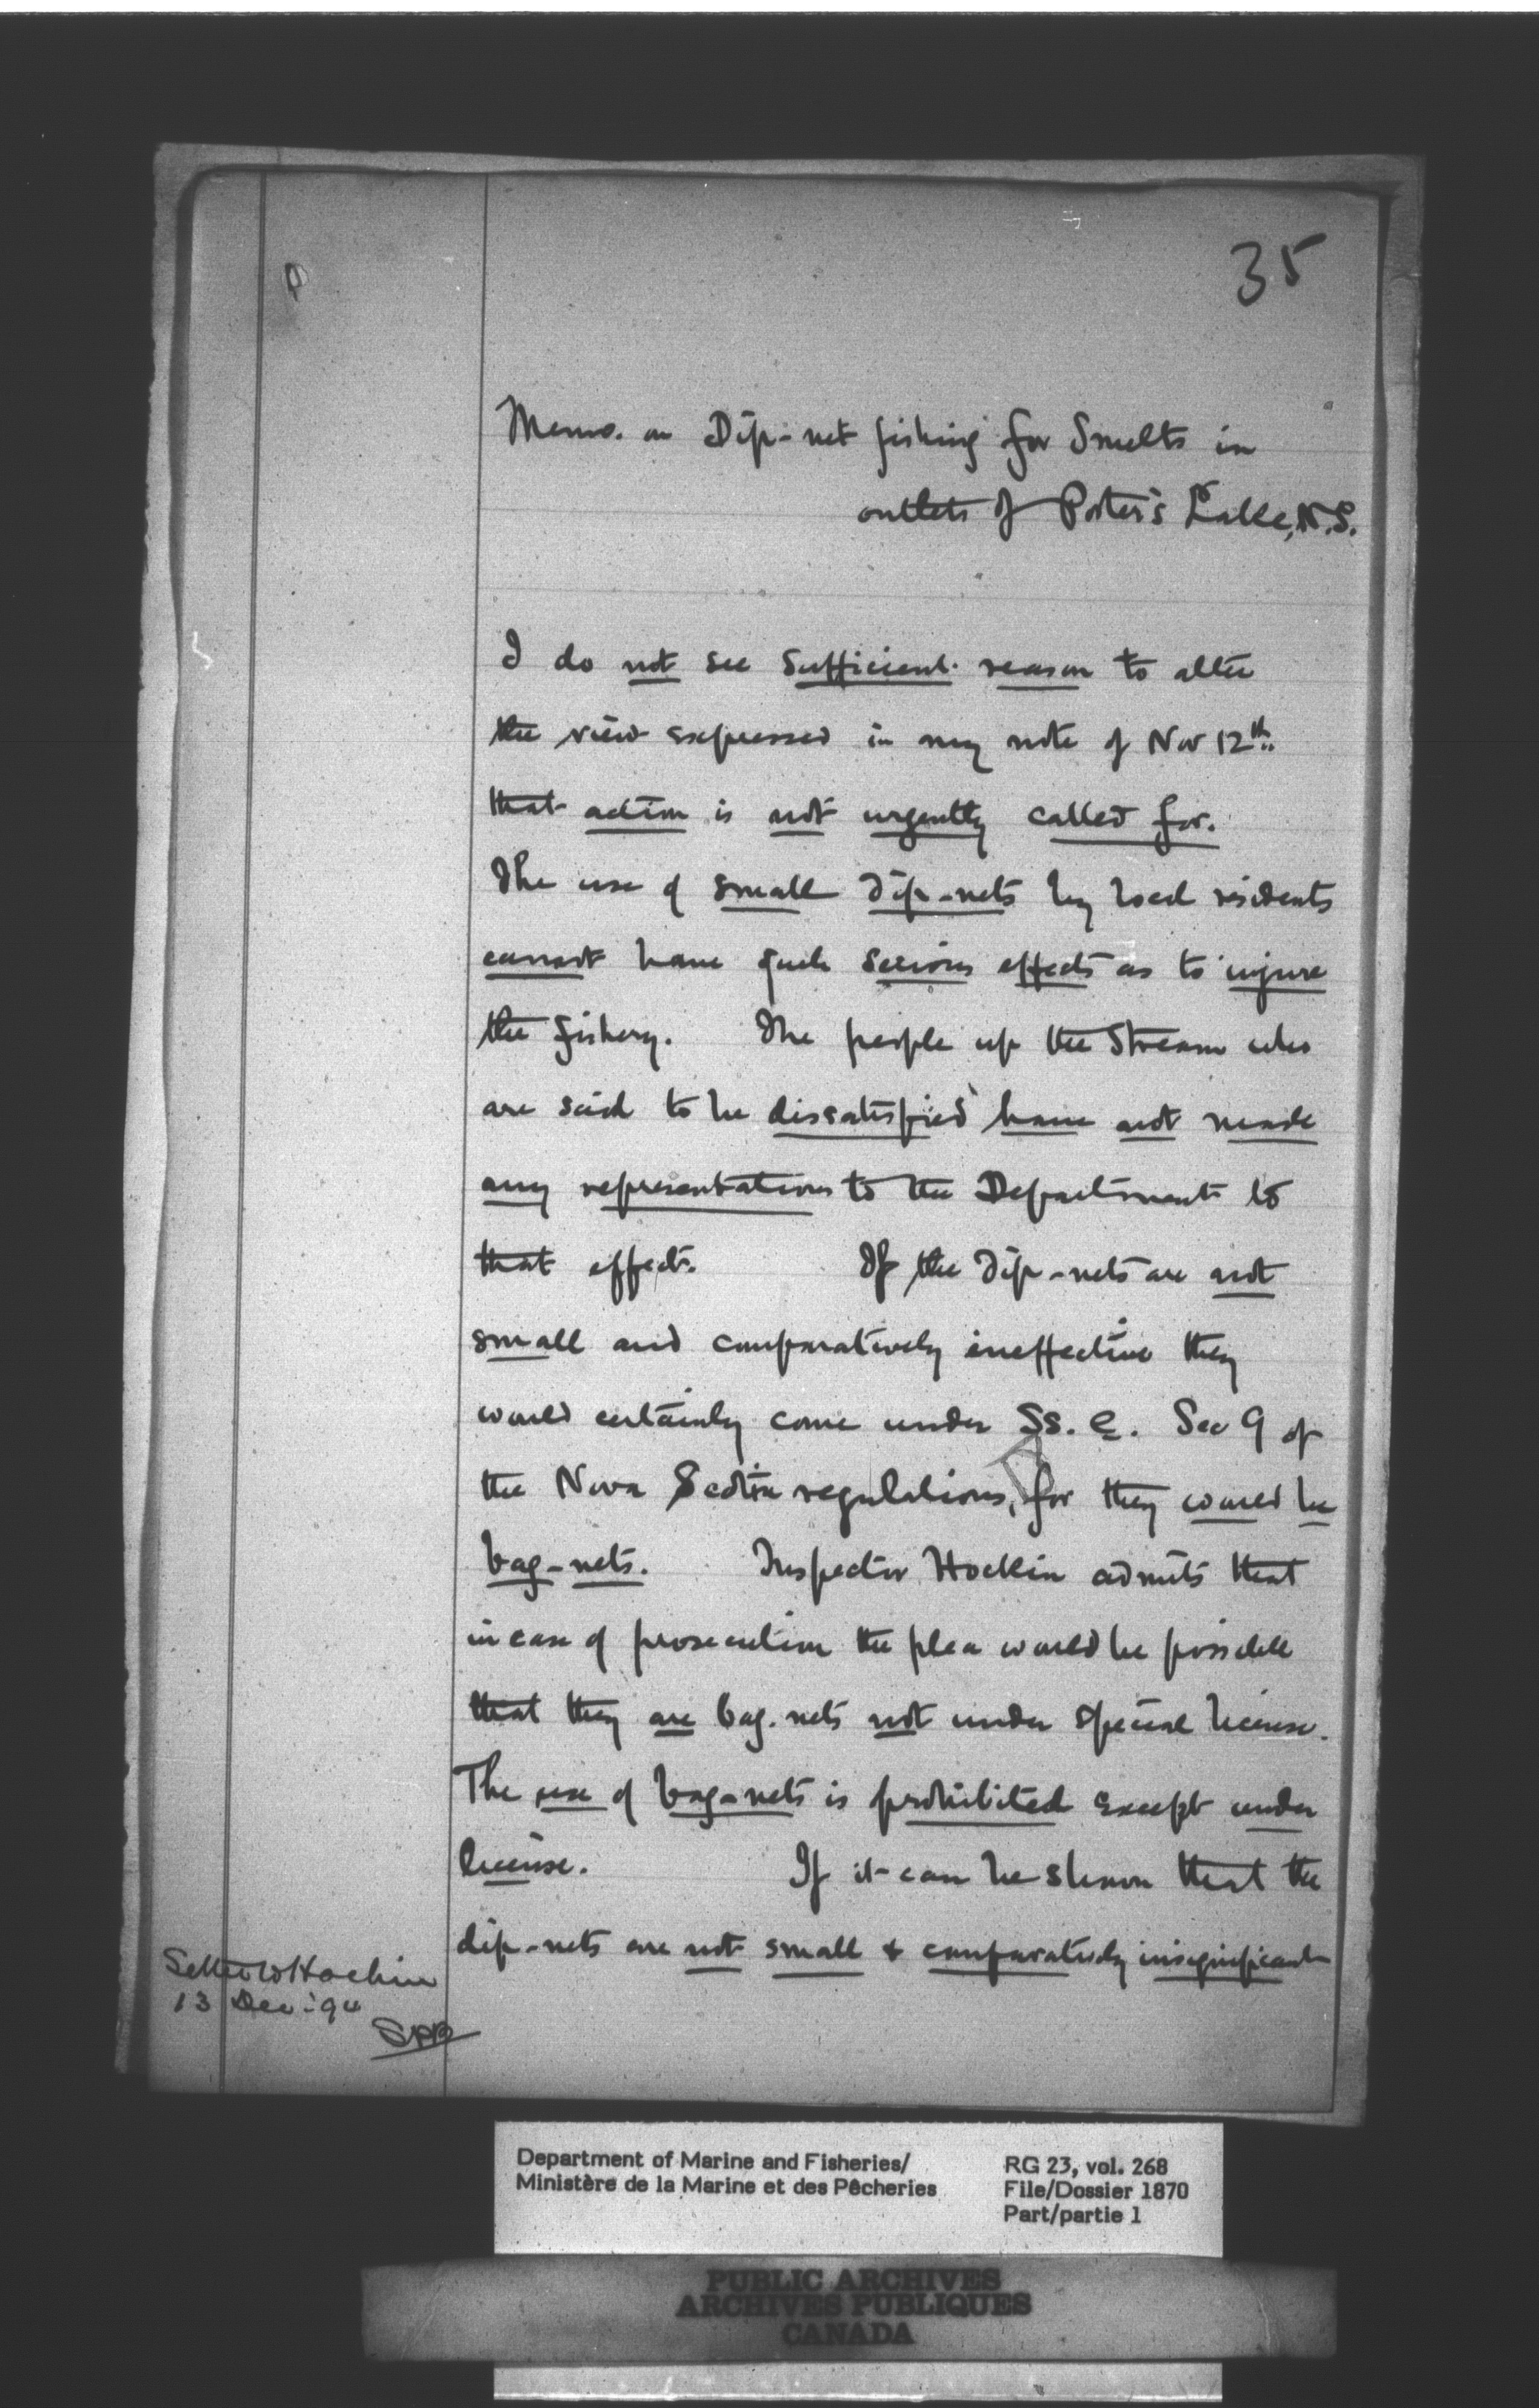 35
Memo. on Dip-net fishing for Smelts in
outlets of Porter's Lake, N.S.
I do not see sufficient reason to alter
the view expressed in my note of Nov 12th.
that action is not urgently called for.
The use of small dip-nets by local residents
cannot have such serious effects as to injure
the fishery. The people up the stream who
are said to be dissatisfied have not made
any representations to the Department to
that effect. If the dip-nets are not
small and comparatively ineffective they
would certainly come under SS. e. Sec 9 of
the Nova Scotia regulations, for they would be
bag-nets. Inspector Hockin admits that
in case of prosecution the plea would be possible
that they are bag-nets not under special license.
The use of bag-nets is prohibited except under
license. If it can be shown that the
dip-nets are not small & comparatively insignificant
Hockin
13 Dec '94
Department of Marine and Fisheries/
Ministère de la Marine et des Pêcheries
RG 23, vol. 268
File/Dossier 1870
Part/partie 1
PUBLIC ARCHIVES
ARCHIVES PUBLIQUES
CANADA